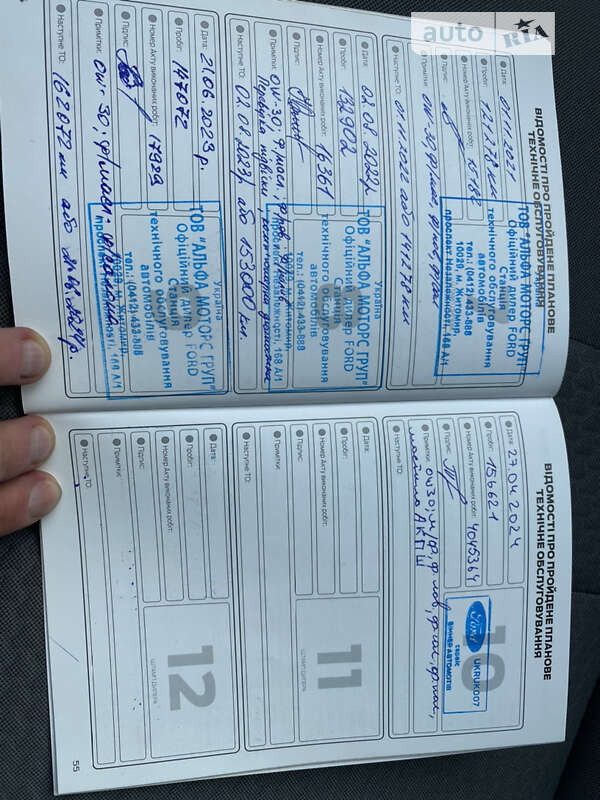 auto RIA
ВІДОМОСТІ ПРО ПРОЙДЕНЕ ПЛАНОВЕ
ТЕХНІЧНЕ ОБСЛУГОВУВАННЯ
Дата: 01.11.2021
Пробіг: 121278 км
Номер Акту виконаних робіт: 15182
Підпис:
Примітки: 0W-30, ф/масл,
Наступне ТО: 01.11.2022 або 141278 км
ТОВ "АЛЬФА МОТОРС ГРУП"
Офіційний дилер FORD
Станція
технічного обслуговування
автомобілів
тел.: (0412)-433-888
10029, м. Житомир,
проспект Незалежності, 168 А/1
Дата: 02.08.2022р
Пробіг: 132902
Номер Акту виконаних робіт: 16361
Підпис:
Примітки: 0W-30, ф/масл.
Перевірка підвіски,
Наступне ТО: 02.08.2023р або 153000 км.
Україна
ТОВ "АЛЬФА МОТОРС ГРУП"
Офіційний дилер FORD
Станція
технічного обслуговування
автомобілів
тел.: (0412)-433-888
Дата: 21.06.2023р.
Пробіг: 147072
Номер Акту виконаних робіт: 17929
Підпис:
Примітки: 0W-30; ф/масл.
Наступне ТО: 162072 км або
Україна
ТОВ "АЛЬФА МОТОРС ГРУП"
Офіційний дилер FORD
Станція
технічного обслуговування
автомобілів
тел.: (0412)-433-888
10029, м. Житомир,
ВІДОМОСТІ ПРО ПРОЙДЕНЕ ПЛАНОВЕ
ТЕХНІЧНЕ ОБСЛУГОВУВАННЯ
Дата: 27.04.2024
Пробіг: 156621
Номер Акту виконаних робіт: 4045364
Підпис:
Примітки: 0w30, м/ф,
мастило АКПП
Наступне ТО:
10
Ford
UKRUK007
сервіс
ВІННЕР АВТОМОТІВ
Дата:
Пробіг:
Номер Акту виконаних робіт:
Підпис:
Примітки:
Наступне ТО:
11
ШТАМП ДИЛЕРА
Дата:
Пробіг:
Номер Акту виконаних робіт:
Підпис:
Примітки:
Наступне ТО:
12
ШТАМП ДИЛЕРА
55